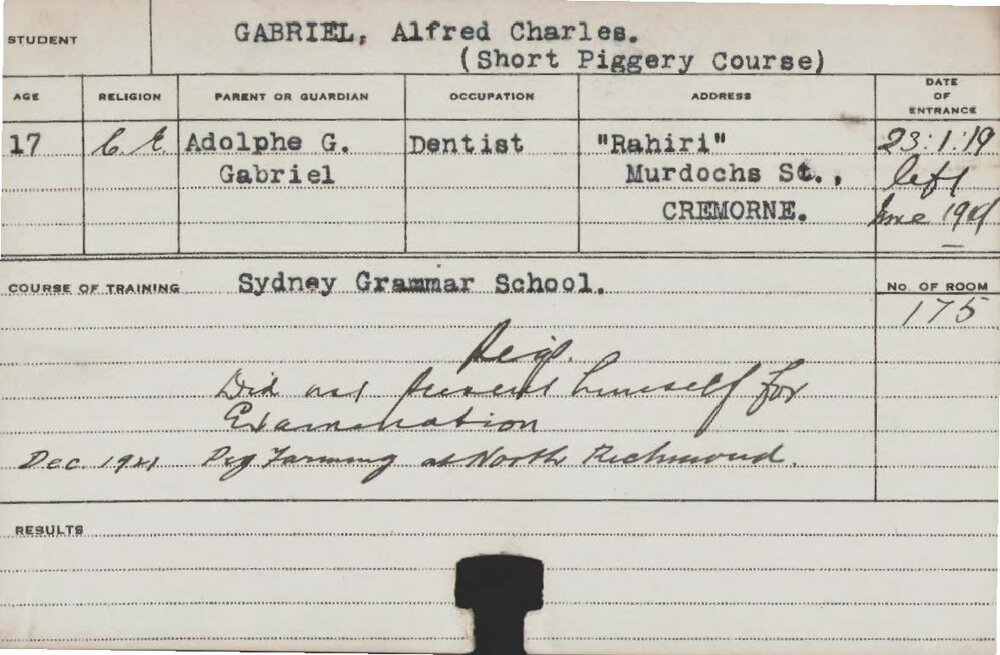 STUDENT
GABRIEL, Alfred Charles.
(Short Piggery Course)
AGE RELIGION PARENT OR GUARDIAN OCCUPATION ADDRESS DATE OF ENTRANCE
17 C. E. Adolphe G. Dentist "Rahiri" 23:1:19
Gabriel Murdochs St., left
CREMORNE. June 1919
COURSE OF TRAINING Sydney Grammar School. NO. OF ROOM
175
Did not present himself for
Examination
Dec. 1921 Pig Farming at North Richmond.
RESULTS